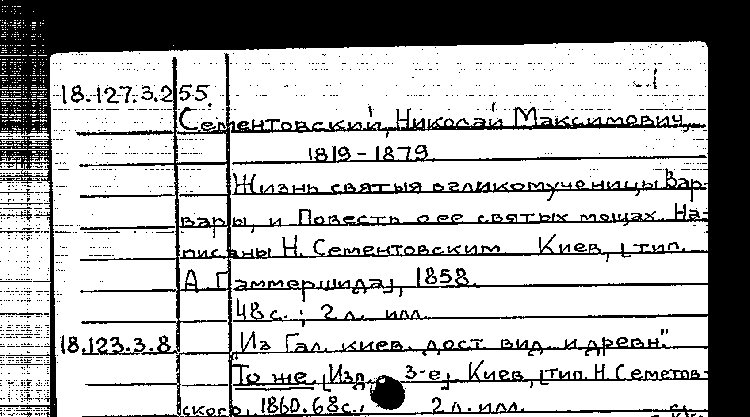 18.127.3.255.
Сементовский, Николай Максимович,
1819-1879.
Жизнь святыя великомученицы Вар-
вары, и Повесть о ее святых мощах. На-
писаны Н. Сементовским Киев, [тип.
А. Гаммершмида], 1858.
48 с.; 2 л. илл.
18.123.3.8. "Из Гал. киев. дост. вид. и древн."
То же. [Изд. 3-е]. Киев, [тип. Н. Семетов-
ского, 1860. 68 с.; 2 л. илл.